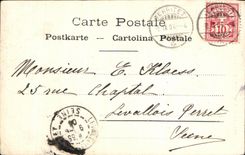 Carte Postale
Postkarte — Cartolina Postale
Monsieur E. Klaess
25 rue Chaptal
Levallois Perret
Seine